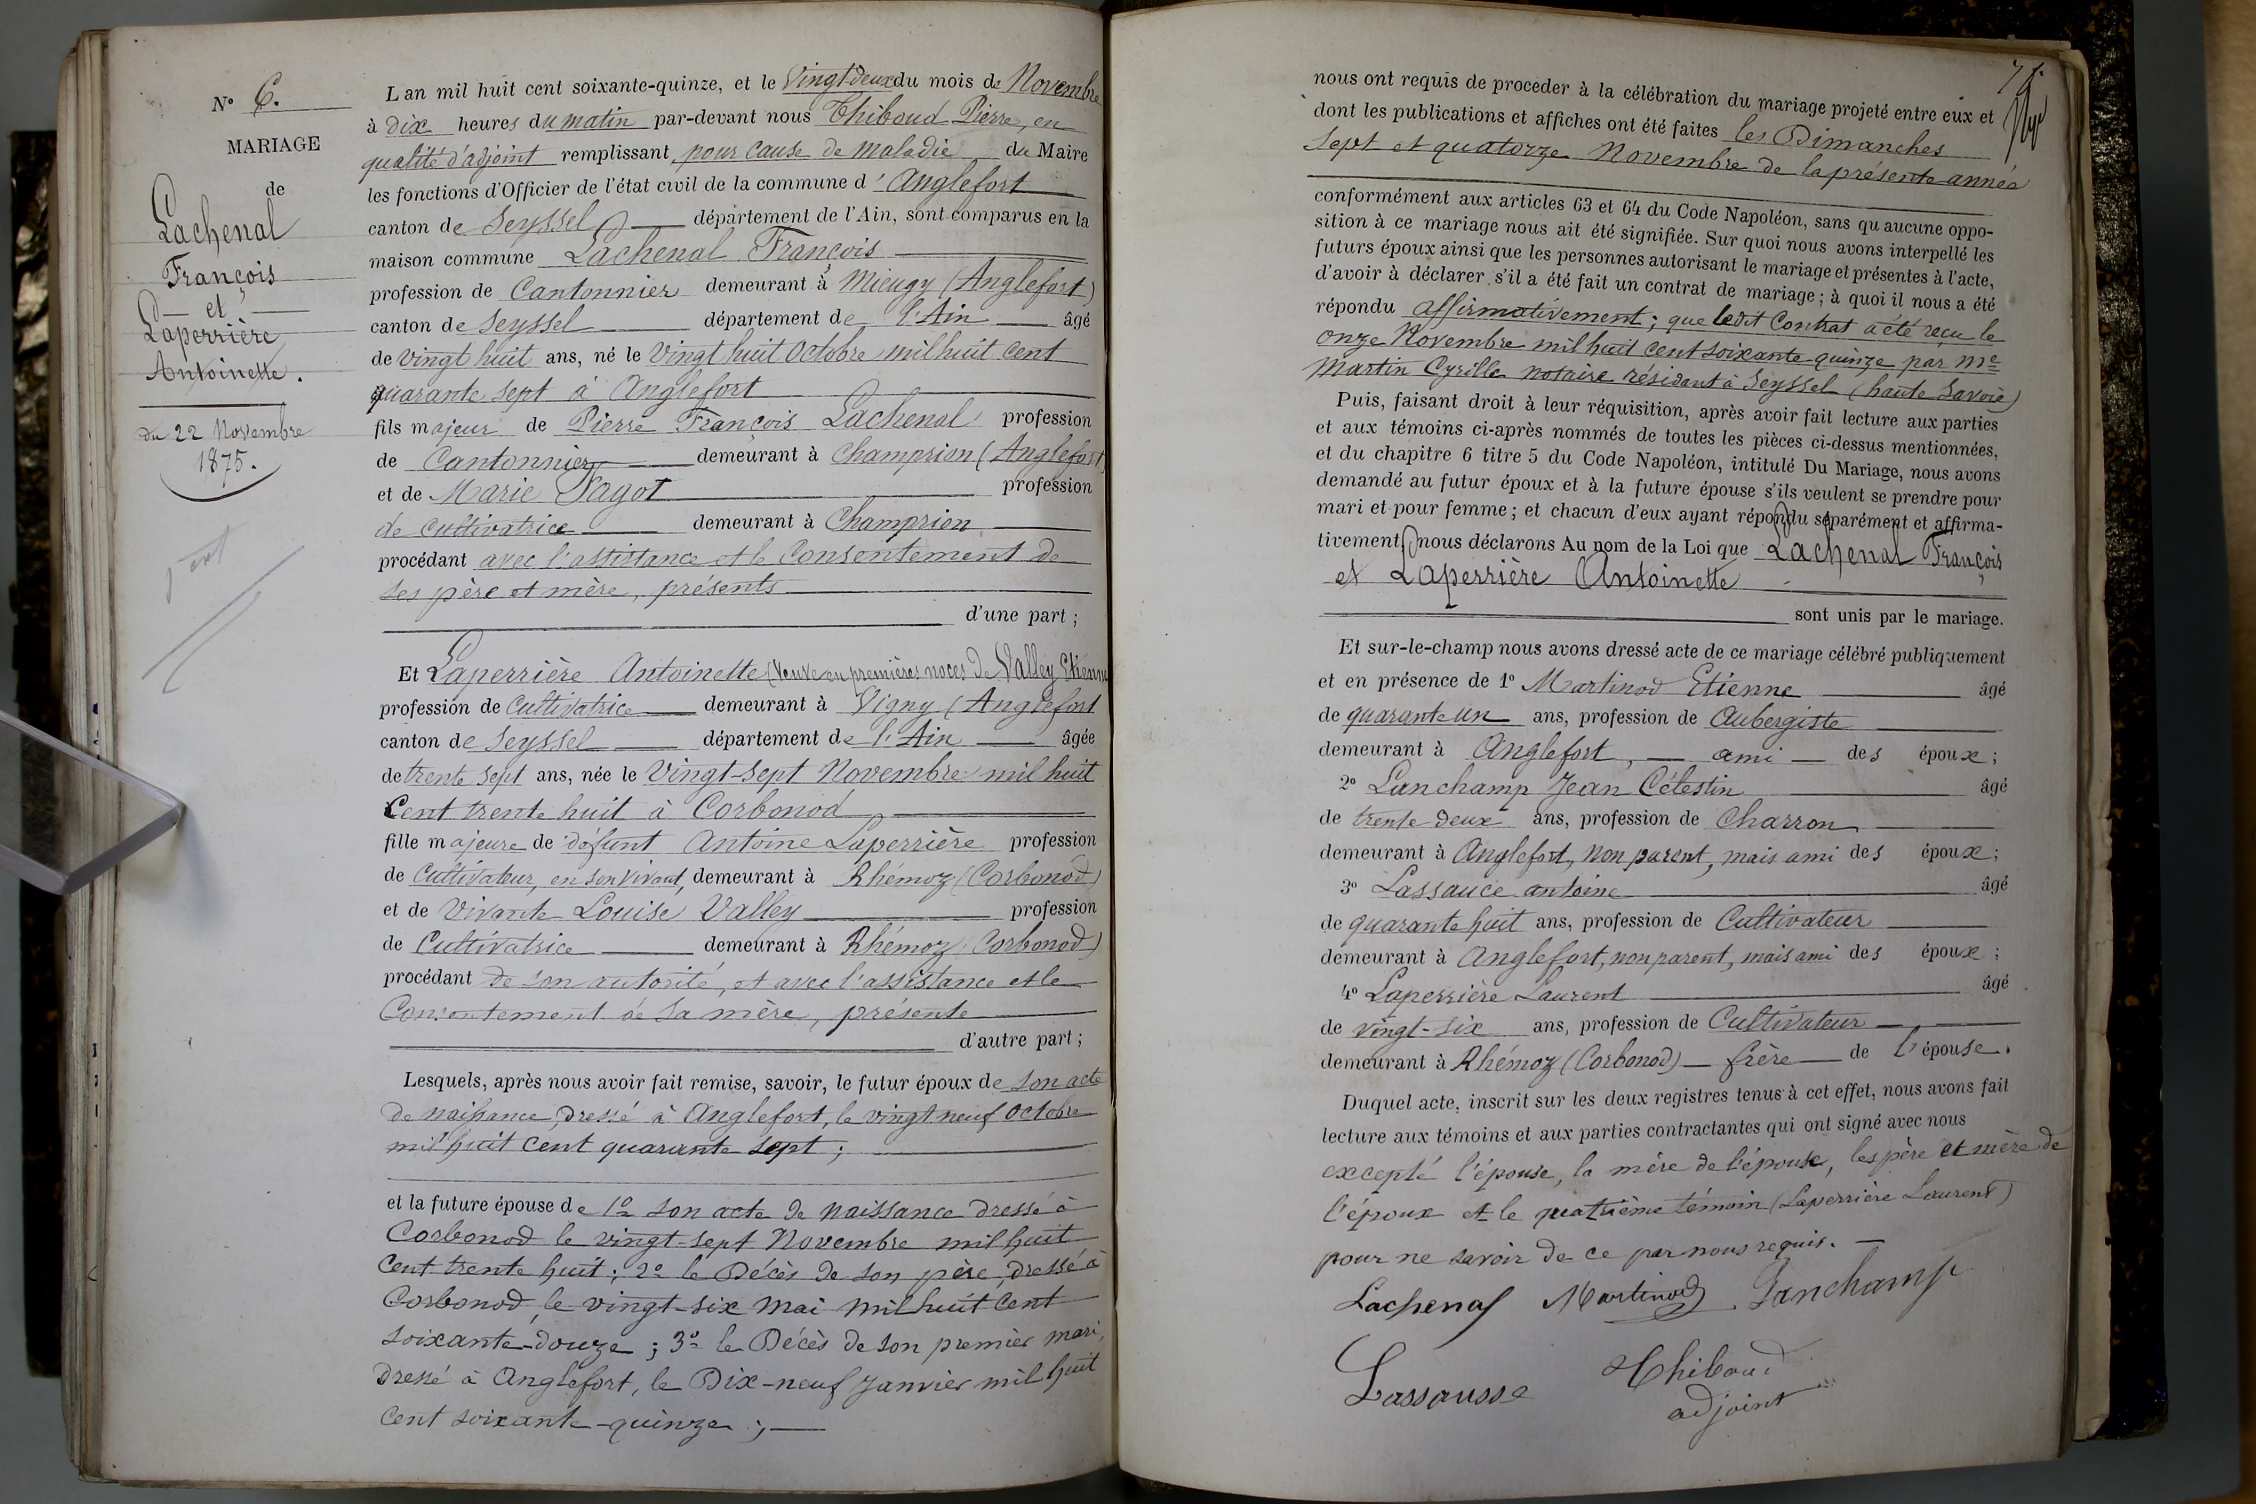 N° 6.
MARIAGE
de
Lachenal
François
et
Laperrière
Antoinette.
du 22 Novembre
1875.
L'an mil huit cent soixante-quinze, et le vingt deux du mois de Novembre
à dix heures du matin par-devant nous Thiboud Pierre, en
qualité d'adjoint remplissant, pour cause de maladie du Maire
les fonctions d'Officier de l'état civil de la commune d'Anglefort
canton de Seyssel département de l'Ain, sont comparus en la
maison commune Lachenal François
profession de Cantonnier demeurant à Mieugy (Anglefort)
canton de Seyssel département de l'Ain âgé
de vingt huit ans, né le vingt huit Octobre mil huit cent
quarante sept à Anglefort
fils majeur de Pierre François Lachenal profession
de Cantonnier demeurant à Champrion (Anglefort)
et de Marie Pagot profession
de cultivatrice demeurant à Champrion
procédant avec l'assistance et le Consentement de
ses père et mère, présents
d'une part ;
Et Laperrière Antoinette (Veuve en premières noces de Valley Etienne
profession de Cultivatrice demeurant à Vigny (Anglefort
canton de Seyssel département de l'Ain âgée
de trente sept ans, née le vingt-sept Novembre mil huit
Cent trente huit à Corbonod
fille majeure de défunt Antoine Laperrière profession
de Cultivateur, en son vivant, demeurant à Rhémoz (Corbonod)
et de vivante Louise Valley profession
de Cultivatrice demeurant à Rhémoz (Corbonod)
procédant de son autorité, et avec l'assistance et le
Consentement de sa mère, présente
d'autre part ;
Lesquels, après nous avoir fait remise, savoir, le futur époux de son acte
de naissance, dressé à Anglefort, le vingt neuf Octobre
mil huit cent quarante sept ;
et la future épouse de 1° son acte de naissance dressé à
Corbonod le vingt-sept Novembre mil huit
Cent trente huit ; 2° le Décès de son père, dressé à
Corbonod, le vingt-six Mai mil huit Cent
soixante-douze ; 3° le Décès de son premier mari,
dressé à Anglefort, le Dix-neuf Janvier mil huit
cent soixante-quinze ;
nous ont requis de procéder à la célébration du mariage projeté entre eux et
dont les publications et affiches ont été faites les Dimanches
sept et quatorze Novembre de la présente année
conformément aux articles 63 et 64 du Code Napoléon, sans qu'aucune oppo-
sition à ce mariage nous ait été signifiée. Sur quoi nous avons interpellé les
futurs époux ainsi que les personnes autorisant le mariage et présentes à l'acte,
d'avoir à déclarer s'il a été fait un contrat de mariage ; à quoi il nous a été
répondu affirmativement ; que ledit Contrat a été reçu le
onze Novembre mil huit cent soixante-quinze par Me
Martin Cyrille notaire résidant à Seyssel (haute Savoie)
Puis, faisant droit à leur réquisition, après avoir fait lecture aux parties
et aux témoins ci-après nommés de toutes les pièces ci-dessus mentionnées,
et du chapitre 6 titre 5 du Code Napoléon, intitulé Du Mariage, nous avons
demandé au futur époux et à la future épouse s'ils veulent se prendre pour
mari et pour femme ; et chacun d'eux ayant répondu séparément et affirma-
tivement, nous déclarons Au nom de la Loi que Lachenal François
et Laperrière Antoinette
sont unis par le mariage.
Et sur-le-champ nous avons dressé acte de ce mariage célébré publiquement
et en présence de 1° Martinod Etienne âgé
de quarante un ans, profession de Aubergiste
demeurant à Anglefort, ami des époux ;
2° Lanchamp Jean Célestin âgé
de trente deux ans, profession de Charron
demeurant à Anglefort, non parent, mais ami des époux ;
3° Lassauce antoine âgé
de quarante huit ans, profession de Cultivateur
demeurant à Anglefort, non parent, mais ami des époux ;
4° Laperrière Laurent âgé
de vingt-six ans, profession de Cultivateur
demeurant à Rhémoz (Corbonod) frère de l'épouse.
Duquel acte, inscrit sur les deux registres tenus à cet effet, nous avons fait
lecture aux témoins et aux parties contractantes qui ont signé avec nous
excepté l'épouse, la mère de l'épouse, les père et mère de
l'époux et le quatrième témoin (Laperrière Laurent)
pour ne savoir de ce par nous requis.
Lachenal Martinod Lanchamp
Lassausse Thiboud
adjoint